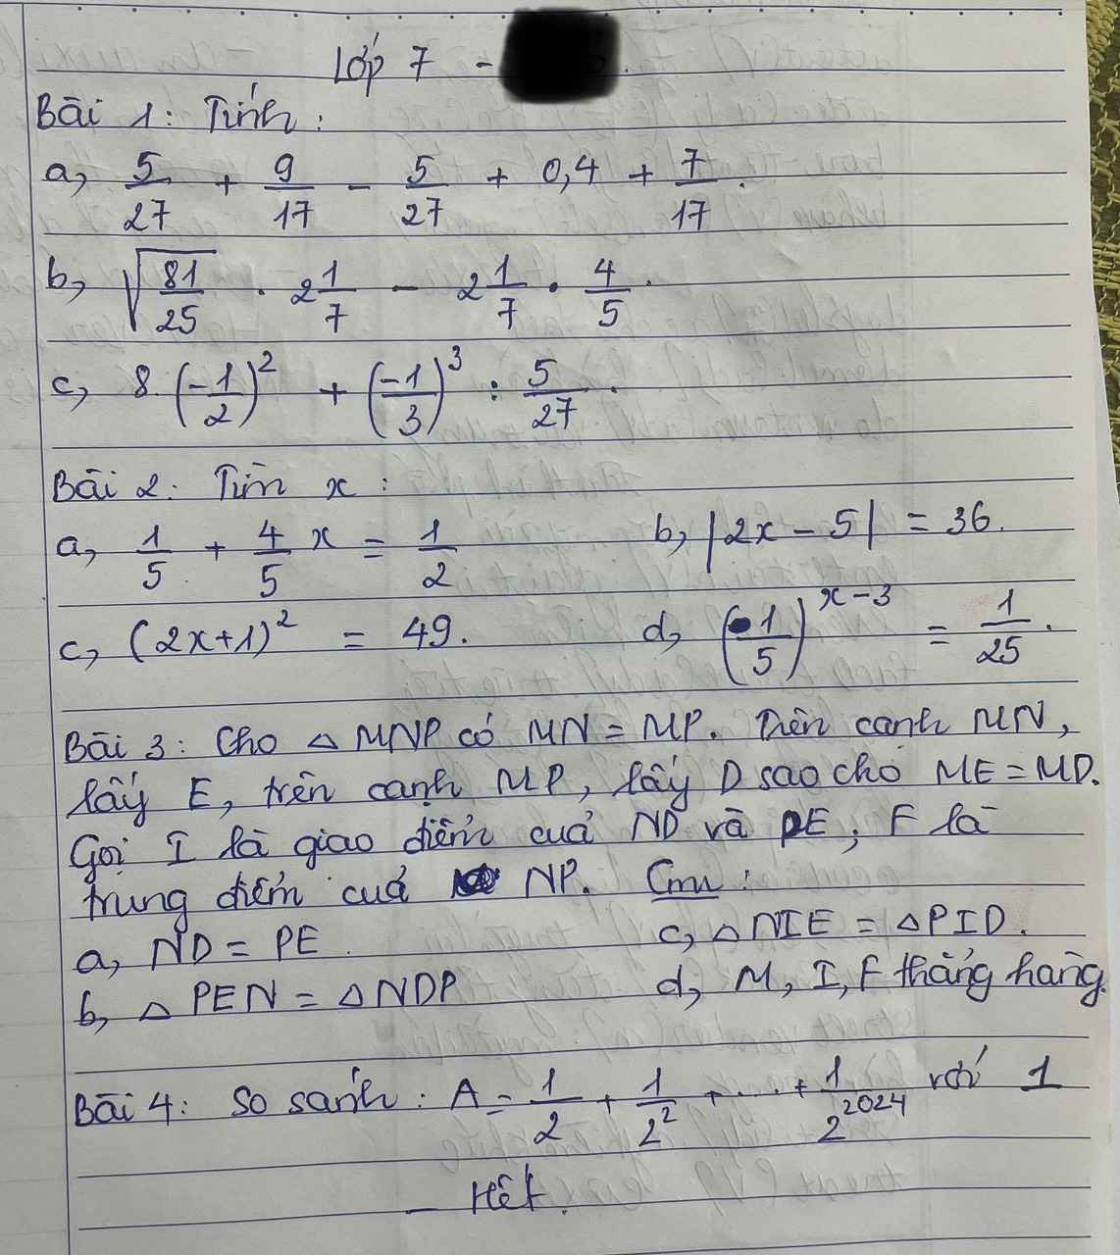 Lớp 7 -
Bài 1: Tính:
a, 5/27 + 9/17 - 5/27 + 0,4 + 7/17.
b, √(81/25) . 2 1/7 - 2 1/7 . 4/5.
c, 8. (-1/2)² + (-1/3)³ : 5/27.
Bài 2: Tìm x:
a, 1/5 + 4/5 x = 1/2 b, |2x - 5| = 36.
c, (2x+1)² = 49. d, (1/5)^(x-3) = 1/25.
Bài 3: Cho △ MNP có MN = MP. Trên cạnh MN,
lấy E, trên cạnh MP, lấy D sao cho ME = MD.
Gọi I là giao điểm của ND và PE, F là
trung điểm của NP. Cmr:
a, ND = PE. c, △NIE = △PID.
b, △ PEN = △NDP d, M, I, F thẳng hàng.
Bài 4: So sánh: A = 1/2 + 1/2² + ... + 1/2^2024 với 1
Hết.